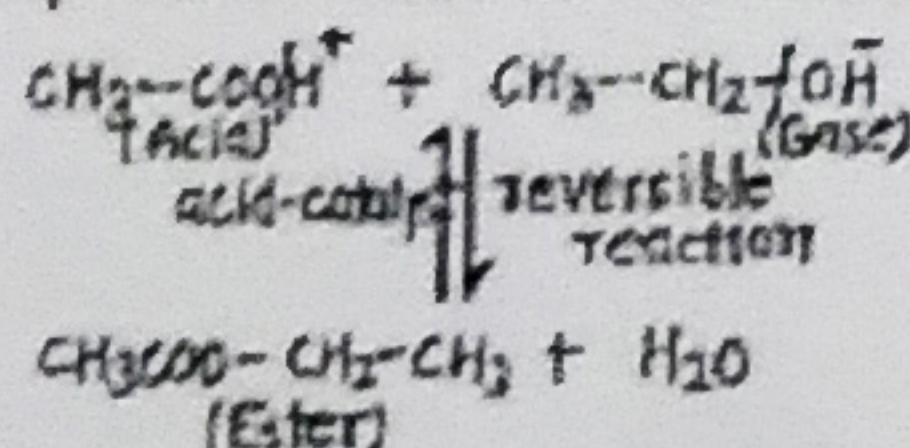 CH3-COOH+ + CH3-CH2-OH-
(Acid) (Base)
acid-cataly reversible
reaction
CH3COO-CH2-CH3 + H2O
(Ester)